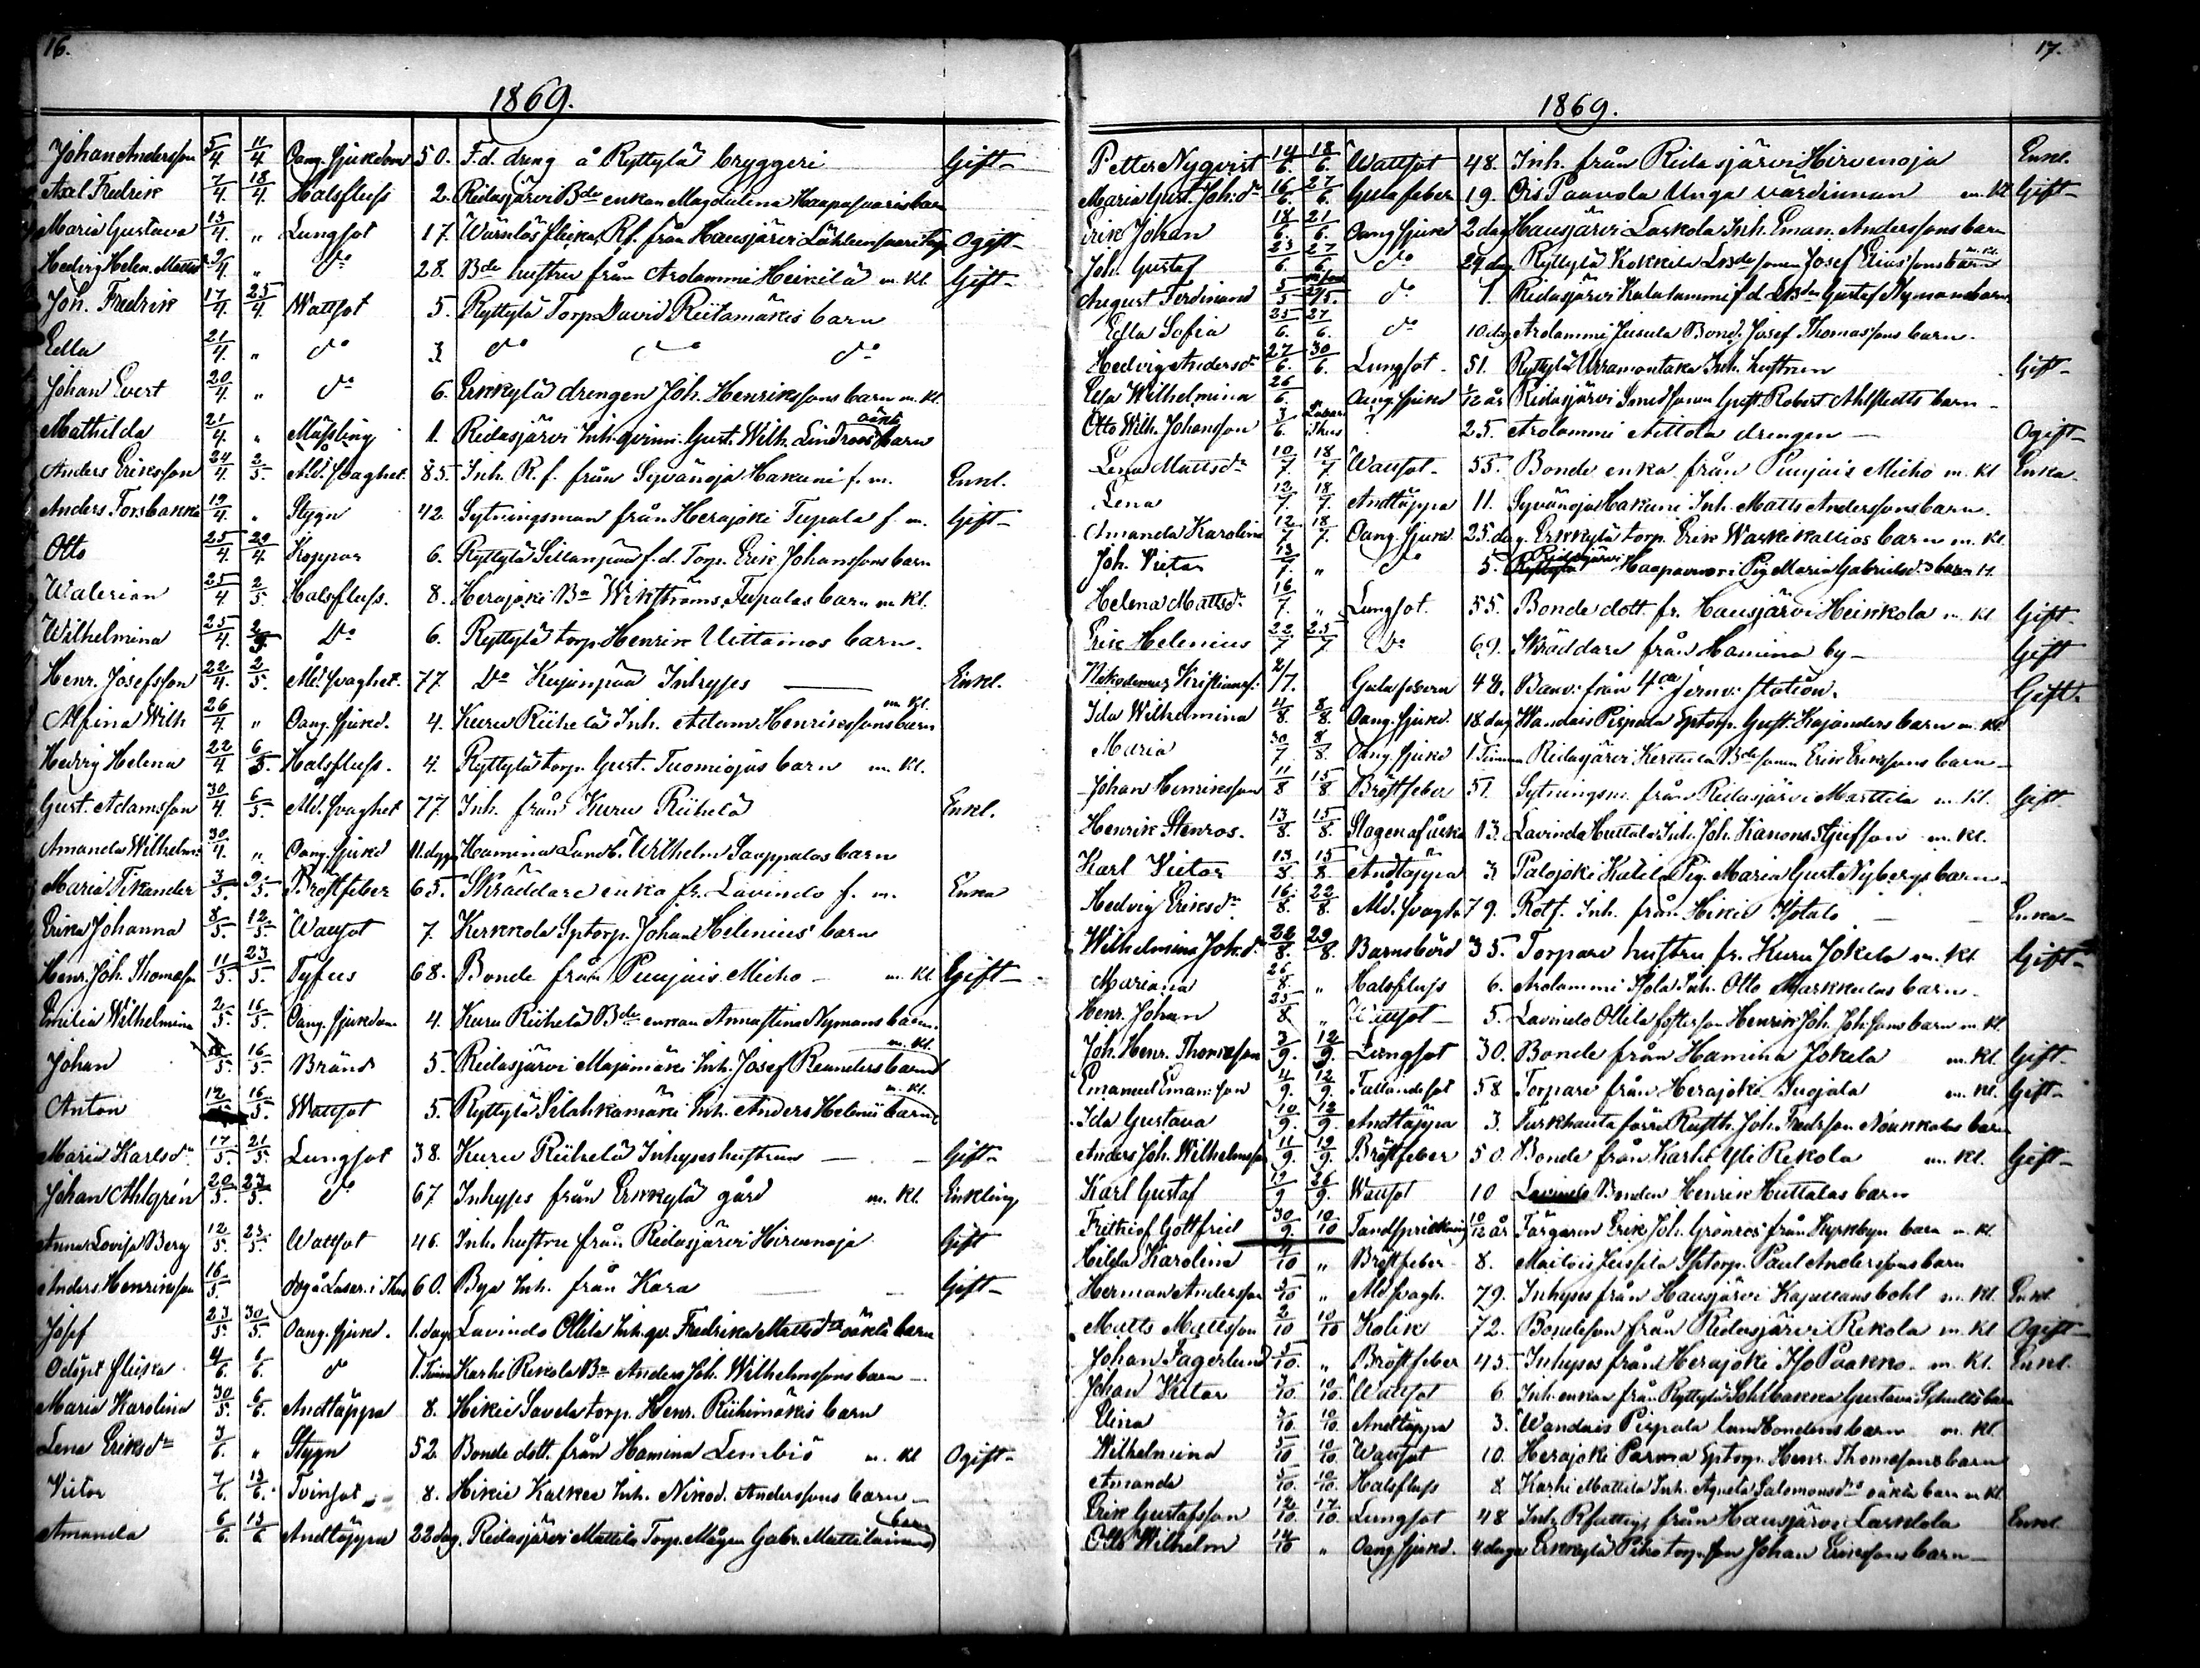 16.
1869.
Johan Andersson 5/4 11/4 Oang. sjukdom 50. F.d. dreng å Ryttylä bryggeri Gift
Axel Fredrik 7/4 18/4 Halsfluss 2. Ridasjärvi Bde enkan Magdalena Haapasuaris barn
Maria Gustava 13/4 " Lungsot 17. Wärnlös flicka, Rf. från Hausjärvi Ogift
Hedvig Helen. 9/4 " do 28. Bde hustru från Arolammi Heikilä m. kl. Gift
Joh. Fredrik 17/4 25/4 Wattsot 5. Ryttylä Torp. David Riitamäkis barn
Edla 21/4 " do 3 do do do
Johan Evert 20/4 " do 6. Erkkylä drengen Joh. Henrikssons barn m. kl.
Mathilda 21/4 " Mässling 1. Ridasjärvi Inh. qvinn. Gust. Wilh. Lindroos oäkta barn
Anders Eriksson 24/4 2/5 Åld. svaghet 85. Inh. R.f. från Syvänoja Hakuni f. m. Enkl.
Anders Forsbacka 19/4 " Stygn 42. Sytningsman från Herajoki Tupala f. m. Gift
Otto 25/4 29/4 Koppor 6. Ryttylä Sillanpää f.d. Torp. Erik Johanssons barn
Walerian 25/4 2/5 Halsfluss. 8. Herajoki Bn Wikströms Tupalas barn m. kl.
Wilhelmina 25/4 2/5 Do 6. Ryttylä torp. Henrik Uittamos barn.
Henr. Josefsson 22/4 2/5 Åld. svaghet. 77. Do Kujanpää Inhyses Enkl.
Alfina Wilh 26/4 " Oang. sjukd. 4. Kuru Riihelä Inh. Adam Henrikssons barn m. kl.
Hedvig Helena 22/4 6/5 Halsfluss. 4. Ryttylä torp. Gust. Tuomiojas barn m. kl.
Gust. Adamsson 30/4 6/5 Åld. svaghet 77. Inh. från Kuru Riihelä Enkl.
Amanda Wilhelm. 30/4 " Oang. sjukd 11. dygn Hamina Landb. Wilhelm Saappalas barn
Maria Tikander 3/5 9/5 Bröstfeber 65. Skräddare enka fr. Lavindo f. m. Enka
Erika Johanna 8/5 12/5 Wattsot 7. Kerkkola Sptorp. Johan Helenius' barn
Henr. Joh. Thomasson 11/5 23/5 Tyfus 68. Bonde från Puujais Micko m. kl. Gift
Emilia Wilhelmina 2/5 16/5 Oang. sjukdom 4. Kuru Riihelä Bde enkan Annastina Nymans barn.
Johan 16/5 Bränd 5. Ridasjärvi Majamäki Inh. Josef Reanders barn m. kl.
Anton 12/5 16/5 Wattsot 5. Ryttylä Inh. Anders Helenii barn m. kl.
Maria Karlsdr 17/5 21/5 Lungsot 38. Kuru Riihelä Inhyses hustrun Gift
Johan Ahlgrén 20/5 23/5 do 67 Inhyses från Erkkylä gård m. kl. Enkling
Anna Lovisa Berg 12/5 23/5 Wattsot 46. Inh. hustru från Ridasjärvi Hirvenoja Gift
Anders Henriksson 16/5 dog å Lasar. i Thus 60. Bya Inh. från Kara Gift
Josef 23/5 30/5 Oang. sjukd. 1. dag Lavindo Ollila Inh. qv. Fredrika Mattsdrs oäkta barn
Odöpt flicka 4/6 6/6 do 1. Timme Karhi Rekola Bn Anders Joh. Wilhelmssons barn
Maria Karolina 30/5 6/6 Andtäppa 8. Hikiä Savela torp. Henr. Riihimäkis barn
Lena Eriksdr 3/6 " Stygn 52. Bonde dott. från Hamina Lembiö m. kl Ogift
Victor 7/6 13/6 Tvinsot 8. Hikiä Kalkea Inh. Nikod. Anderssons barn
Amanda 6/6 13/6 Andtäppa 22 dag. Ridasjärvi Mattila Torp. Mågen Gabr. Mattilainens barn
17.
1869.
Petter Nyqvist 14/6 18/6 Wattsot 48. Inh. från Ridasjärvi Hirvenoja Enkl.
Maria Gust. Joh.dr 16/6 27/6 Gula feber 19. Ois Paavola Unga värdinnan m. kl Gift
Erik Johan 18/6 21/6 Oang. sjukd 2 dag Hausjärvi Laskola Inh. Eman. Anderssons barn
Joh. Gustaf 23/6 27/6 do 24 dag Ryttylä Kokkila Josef Eliassons barn m. kl.
August Ferdinand 5/5 do 1. Ridasjärvi Kalalammi f.d. Gustaf Nymans barn
Edla Sofia 25/6 27/6 do 10 dag Arolammi Jussila Bond. Josef Thomassons barn.
Hedvig Andersdr 27/6 30/6 Lungsot 51. Ryttylä Inh. hustrun Gift
Eda Wilhelmina 26/6 " Oang. sjukd 1/12 år Ridasjärvi Smedsonen Gust. Robert Ahlstedts barn
Otto Wilh. Johansson 3/6 Lasar. Thus ? 25. Arolammi Aittola drengen Ogift
Lena Mattsdr 10/7 18/7 Wattsot 55. Bonde enka från Puujais Micko m. kl Enka.
Lena 12/7 18/7 Andtäppa 11. Syvänoja Hakuni Inh. Matts Anderssons barn.
Amanda Karolina 12/7 18/7 Oang. sjukd. 25 dag. Erkkylä torp. Erik Waskikallios barn m. kl.
Joh. Victor 13/7 " do 5. Ridasjärvi Haapasuari Pig. Maria Gabrielsd.s barn
Helena Mattsdr 16/7 " Lungsot. 55. Bonde dott. fr. Hausjärvi Heinkola m. kl Gift
Erik Helenius 22/7 25/7 Do 69. Skräddare från Hamina by Gift
Nikodemus Kristianss: 2/7. Gula febern 48. Banv: från 4de Jernv: station. Gift
Ida Wilhelmina 4/8 8/8 Oang. sjukd. 18 dag Wandais Pispala Sptorp. Gust. Kajanders barn m. kl.
Maria 30/7 8/8 Oang. sjukd 1. Timme Ridasjärvi Kerttula Bdesonen Erik Erikssons barn
Johan Henriksson 11/8 15/8 Bröstfeber 51. Sytningsm. från Ridasjärvi Marttila m. kl. Gift
Henrik Stenros. 13/8 15/8 Slagen af åska 13. Lavinda Huttala Inh. Joh. Kanons styfson m. kl.
Karl Victor 13/8 15/8 Andtäppa 3 Palojoki Pig. Maria Gust. Nybergs barn
Hedvig Eriksdr 16/8 22/8 Åld. svagh. 79. Rotf. Inh. från Hikiä Isotalo Enka
Wilhelmina Joh.dr 22/8 29/8 Barnsbörd 35. Torpare hustru fr. Kuru Jokela m. kl Gift
Mariana 26/8 " Halsfluss 6. Arolammi Isola Inh. Otto Markkulas barn
Henr. Johan 25/8 " Wattsot 5. Lavindo Ollila fosterson Henrik Joh. Joh.sons barn m. kl.
Joh. Henr. Thomasson 3/9 12/9 Lungsot 30. Bonde från Hamina Jokela m. kl. Gift
Emanuel Eman:son 4/9 12/9 Fallandesot 58 Torpare från Herajoki m. kl. Gift
Ida Gustava 10/9 12/9 Andtäppa 3. Turkhauta förre Rustth. Joh. Fredrson Nöukkalas barn
Anders Joh. Wilhelmsson 11/9 19/9 Bröstfeber 50. Bonde från Karhi Yli Rekola m. kl. Gift
Karl Gustaf 19/9 26/9 Wattsot 10 Bonden Henrik Huttalas barn
Frithiof Gottfried 30/9 10/10 Tandsprickning 10/12 år Färgaren Erik Joh. Grönros från Kyrkbyn barn m. kl
Hilda Karolina 4/10 " Bröstfeber 8. Jussila Sptorp. Paul Anderssons barn
Herman Andersson 5/10 " Åld svagh. 79. Inhyses från Hausjärvi Kapellans bohl m. kl. Enkl
Matts Mattsson 2/10 10/10 Kolik 72. Bondeson från Ridasjärvi Rekola m. kl Ogift
Johan Fagerlund 5/10. " Bröstfeber 45. Inhyses från Herajoki Iso Paakko m. kl. Enkl.
Johan Victor 3/10 10/10 Wattsot 6 Inh. enkan från Ryttylä Gustava Schultz barn
Elina 5/10 10/10 Andtäppa 3. Wandais Pispala landbondens barn m. kl.
Wilhelmina 5/10 10/10 Wattsot 10. Herajoki Parma Sptorp. Henr. Thomassons barn
Amanda 5/10. 10/10. Halsfluss 8 Karhi Mattila Inh. Agneta Salomonsdrs oäkta barn m. kl.
Erik Gustafsson 12/10 17/10 Lungsot 48 Inh. Rfattig från Hausjärvi Laskola Enkl.
Otto Wilhelm 14/10 " Oang. sjukd. 4 dagar Erkkylä torp. son Johan Erikssons barn